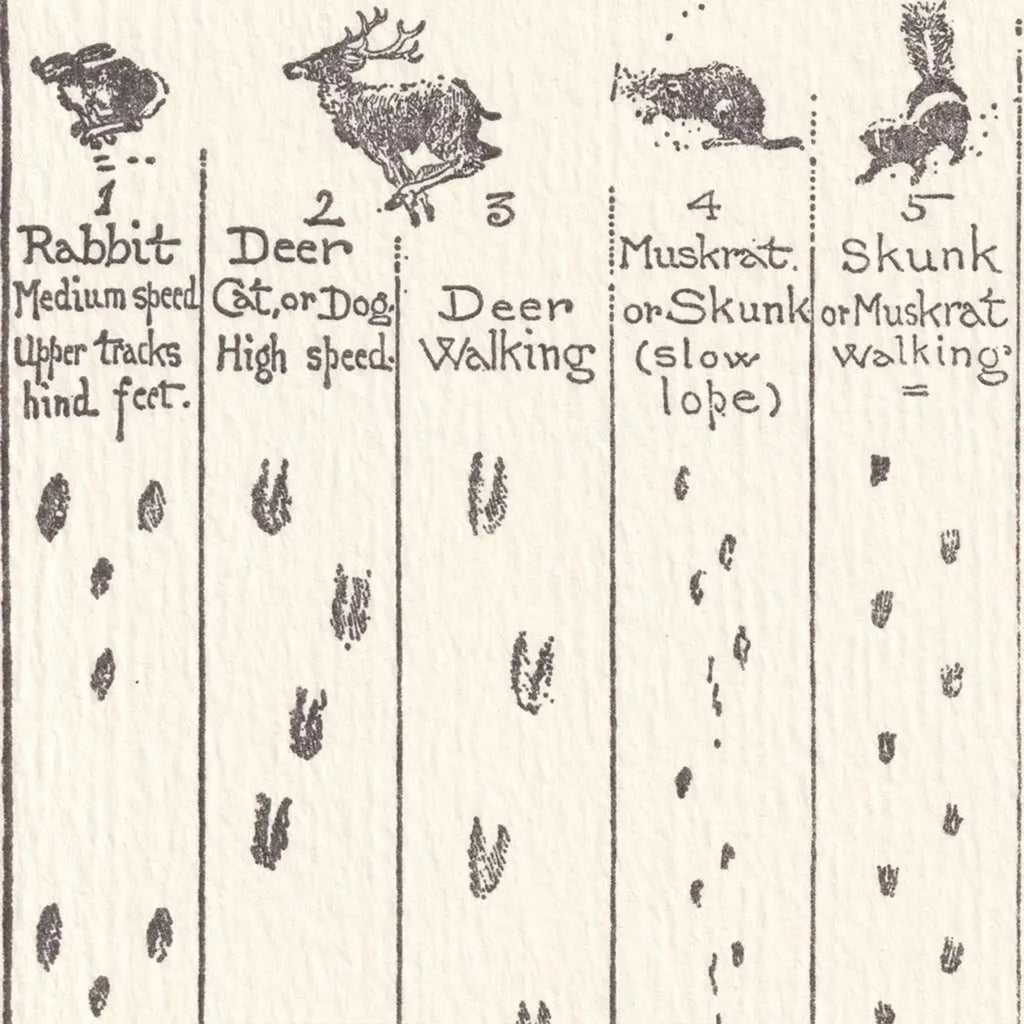 1
Rabbit
Medium speed
Upper tracks
hind feet.
2
Deer
Cat, or Dog.
High speed.
3
Deer
Walking
4
Muskrat.
or Skunk
(slow
lope)
5
Skunk
or Muskrat
Walking